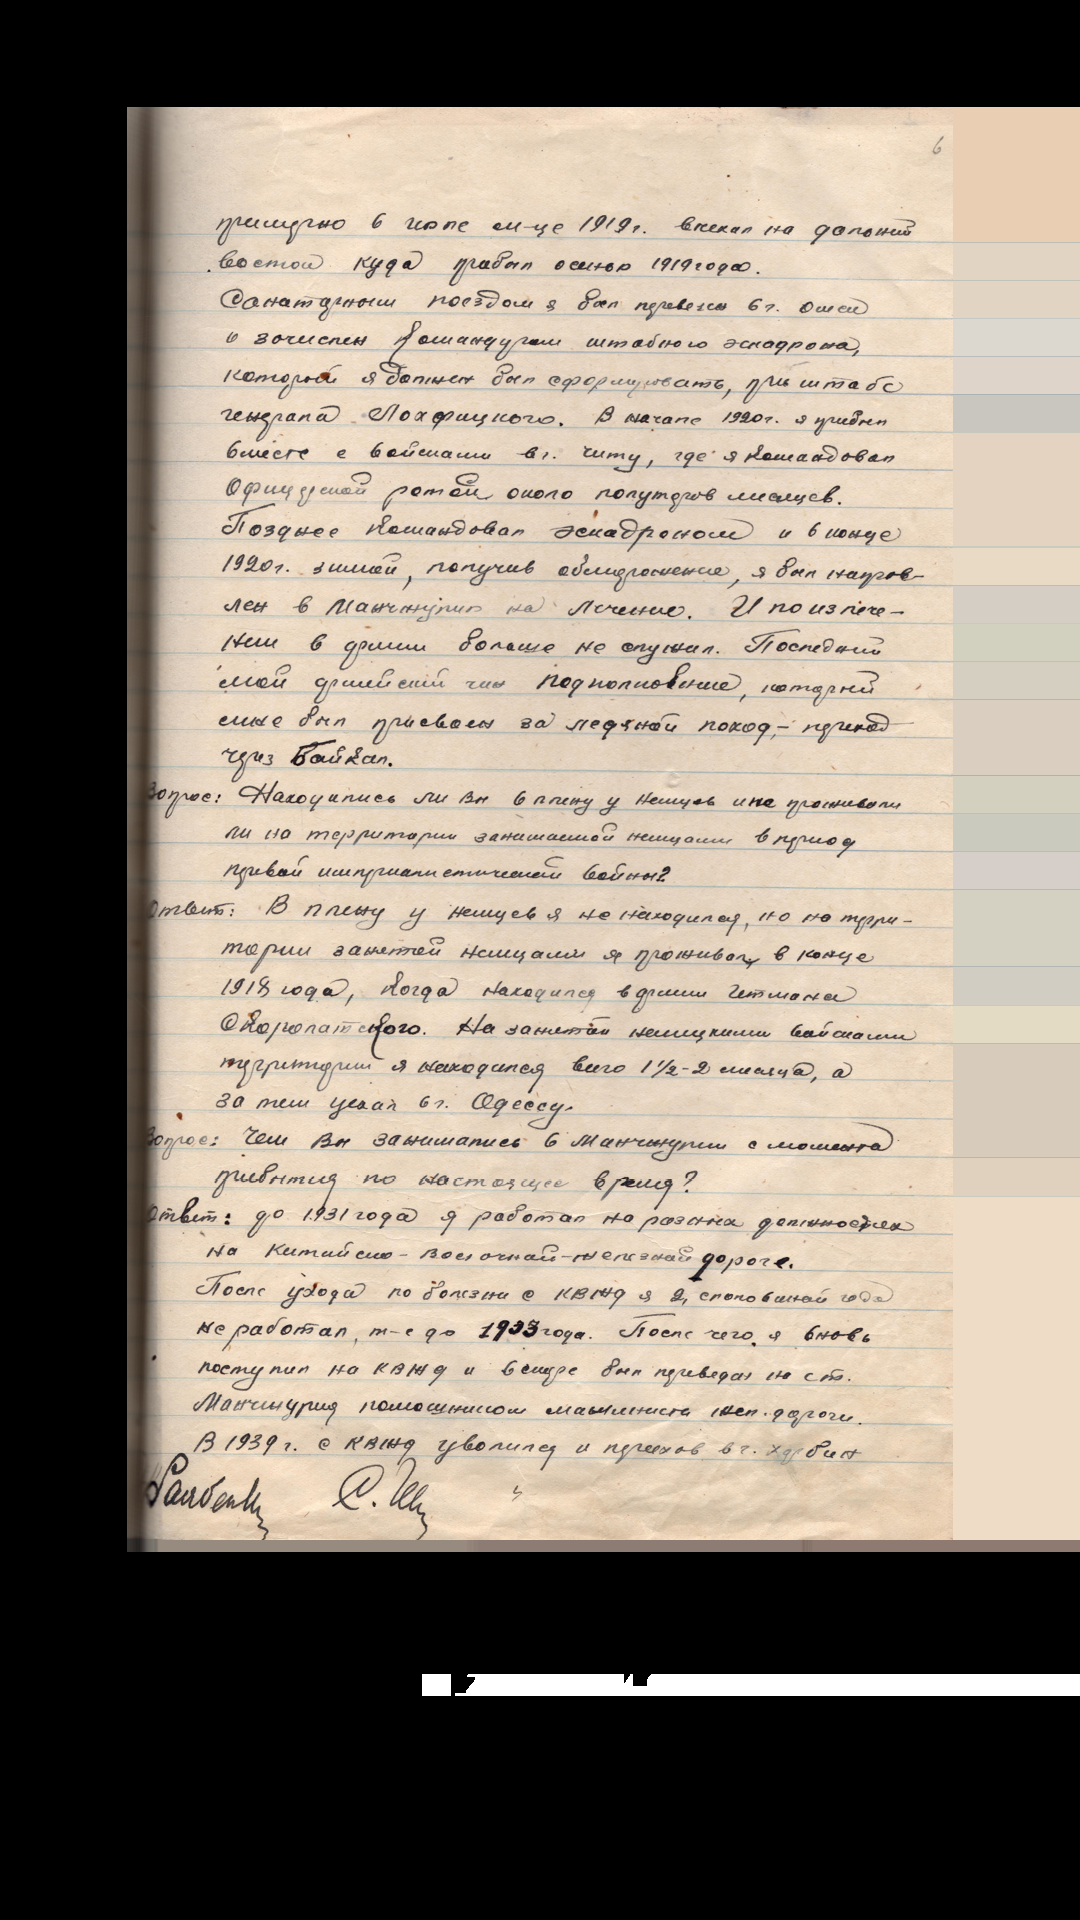 6
примерно в июле м-це 1919г. выехал на дальний
восток куда прибыл осенью 1919года.
Санитарным поездом я был перевезен в г. Омск
и зачислен командиром штабного эскадрона,
который я должен был сформировать, при штабе
генерала Лохфицкого. В начале 1920г. я прибыл
вместе с войсками в г. Читу, где я командовал
Офицерской ротой около полуторов месяцев.
Позднее командовал эскадроном и в конце
1920г. зимой, получив обморожение, я был направ-
лен в Манчжурию на лечение. И по излече-
нии в армии больше не служил. Последний
мой армейский чин подполковник, который
мне был присвоен за ледяной поход, - переход
через Байкал.
Вопрос: Находились ли Вы в плену у немцев и не проживали
ли на территории занимаемой немцами в период
первой империалистической войны?
Ответ: В плену у немцев я не находился, но на терри-
тории занятой немцами я проживал, в конце
1918 года, когда находился в армии Гетмана
Скоропатского. На занятой немецкими войсками
территории я находился всего 1½-2 месяца, а
за тем уехал в г. Одессу.
Вопрос: Чем Вы занимались в Манчжурии с момента
прибытия по настоящее время?
Ответ: до 1931 года я работал на разных должностях
на Китайско-Восточной-железной дороге.
После ухода по болезни с КВЖД я 2, споловиной года
не работал, т-е до 1933 года. После чего, я вновь
поступил на КВЖД и вскоре был переведен на ст.
Манчжурия помощником машиниста жел. дороги.
В 1939 г. с КВЖД уволился и переехов в г. Харбин